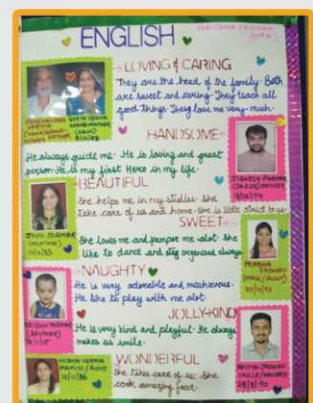 ENGLISH
LOVING & CARING
They are the head of the family. Both
are sweet and caring. They teach all
good things. They love me very much.
HANDSOME
He always guide me. He is loving and great
person. He is my first Hero in my life.
BEAUTIFUL
She helps me in my studies. She
take care of us and home. She is little strict to us.
SWEET
She loves me and pamper me alot. She
like to dance and stay organised always.
NAUGHTY
He is very adorable and mischievous.
He like to play with me alot.
JOLLY-KIND
He is very kind and playful. He always
makes us smile.
WONDERFUL
She take care of us. She
cook amazing food.